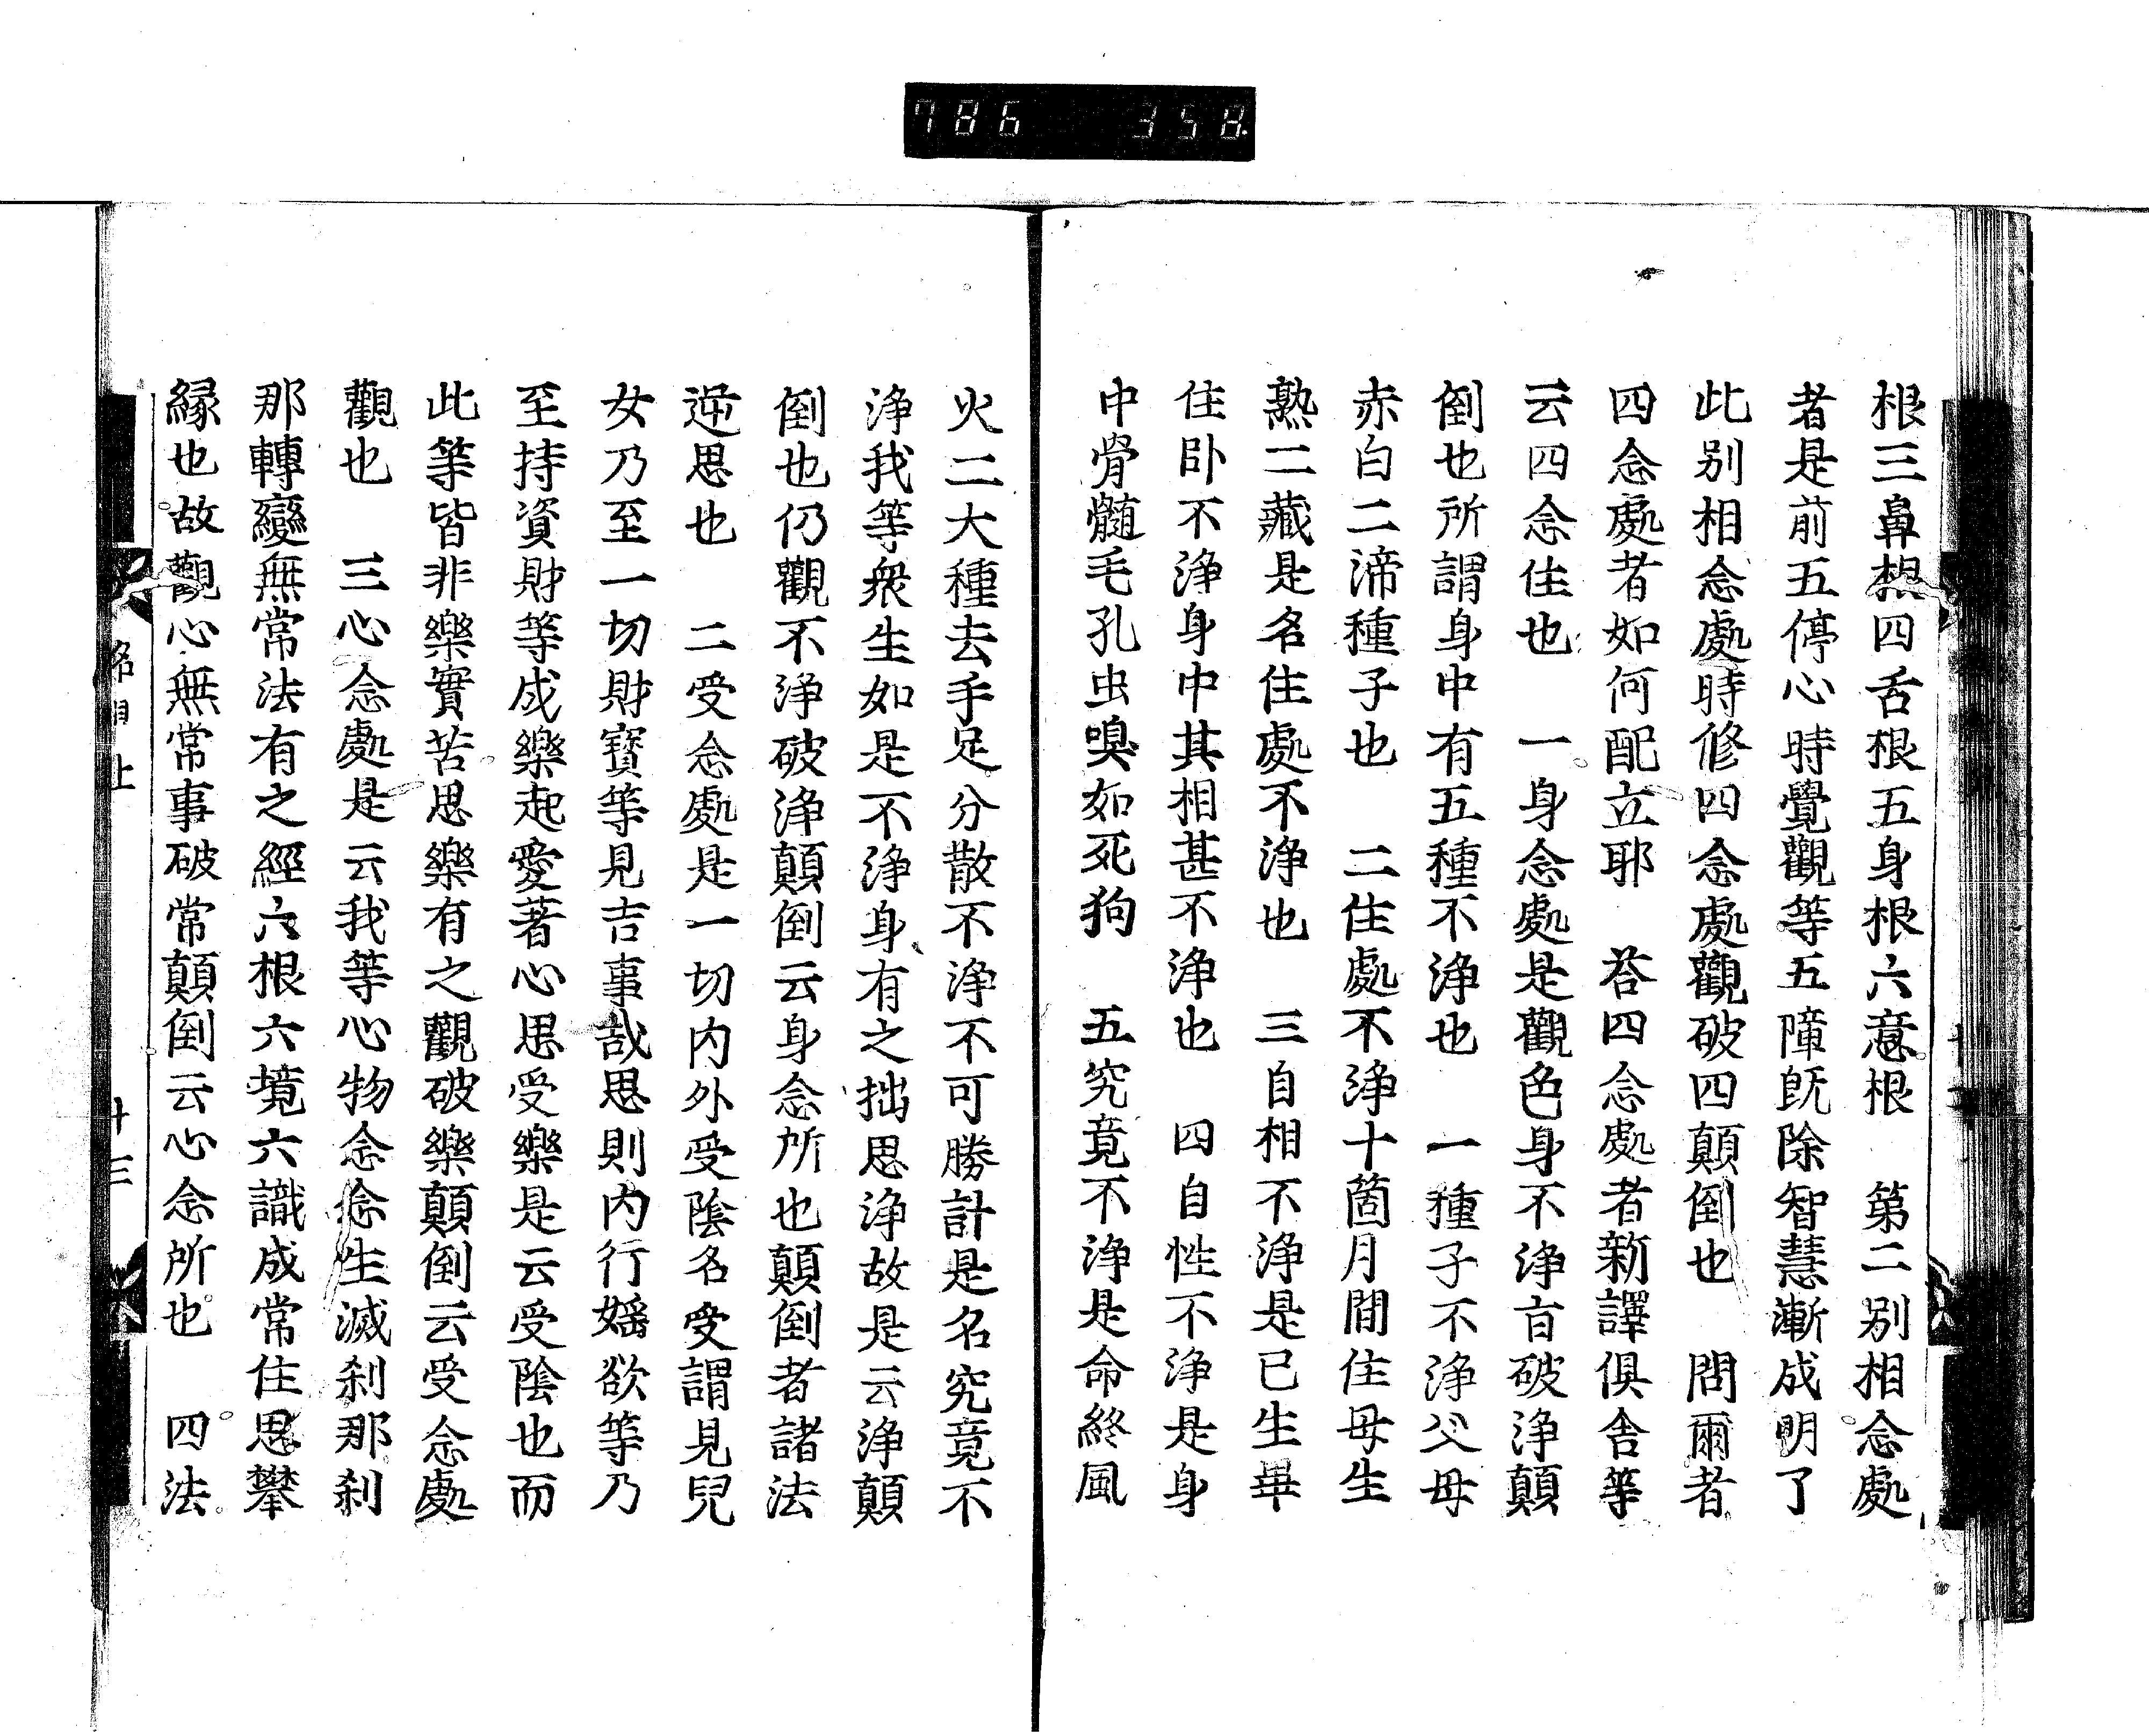 786 358
根三鼻根四舌根五身根六意根　第二別相念處
者是前五停心時覺觀等五障既除智慧漸成明了
此別相念處時修四念處觀破四顛倒也　問爾者
四念處者如何配立耶　荅四念處者新譯俱舎等
云四念住也　一身念處是觀色身不淨百破淨顛
倒也所謂身中有五種不淨也　一種子不淨父母
赤白二渧種子也　二住處不淨十箇月間住母生
熟二藏是名住處不淨也　三自相不淨是已生畢
住臥不淨身中其相甚不淨也　四自性不淨是身
中骨髓毛孔虫嗅如死狗　五究竟不淨是命終風
火二大種去手足分散不淨不可勝計是名究竟不
淨我等衆生如是不淨身有之拙思淨故是云淨顛
倒也仍觀不淨破淨顛倒云身念所也顛倒者諸法
逆思也　二受念處是一切内外受陰名受謂見兒
女乃至一切財寳等見吉事哉思則内行婬欲等乃
至持資財等成樂起愛著心思受樂是云受陰也而
此等皆非樂實苦思樂有之觀破樂顛倒云受念處
觀也　三心念處是云我等心物念念生滅刹那刹
那轉變無常法有之經六根六境六識成常住思攀
縁也故觀心無常事破常顛倒云心念所也　四法
名目上　十三